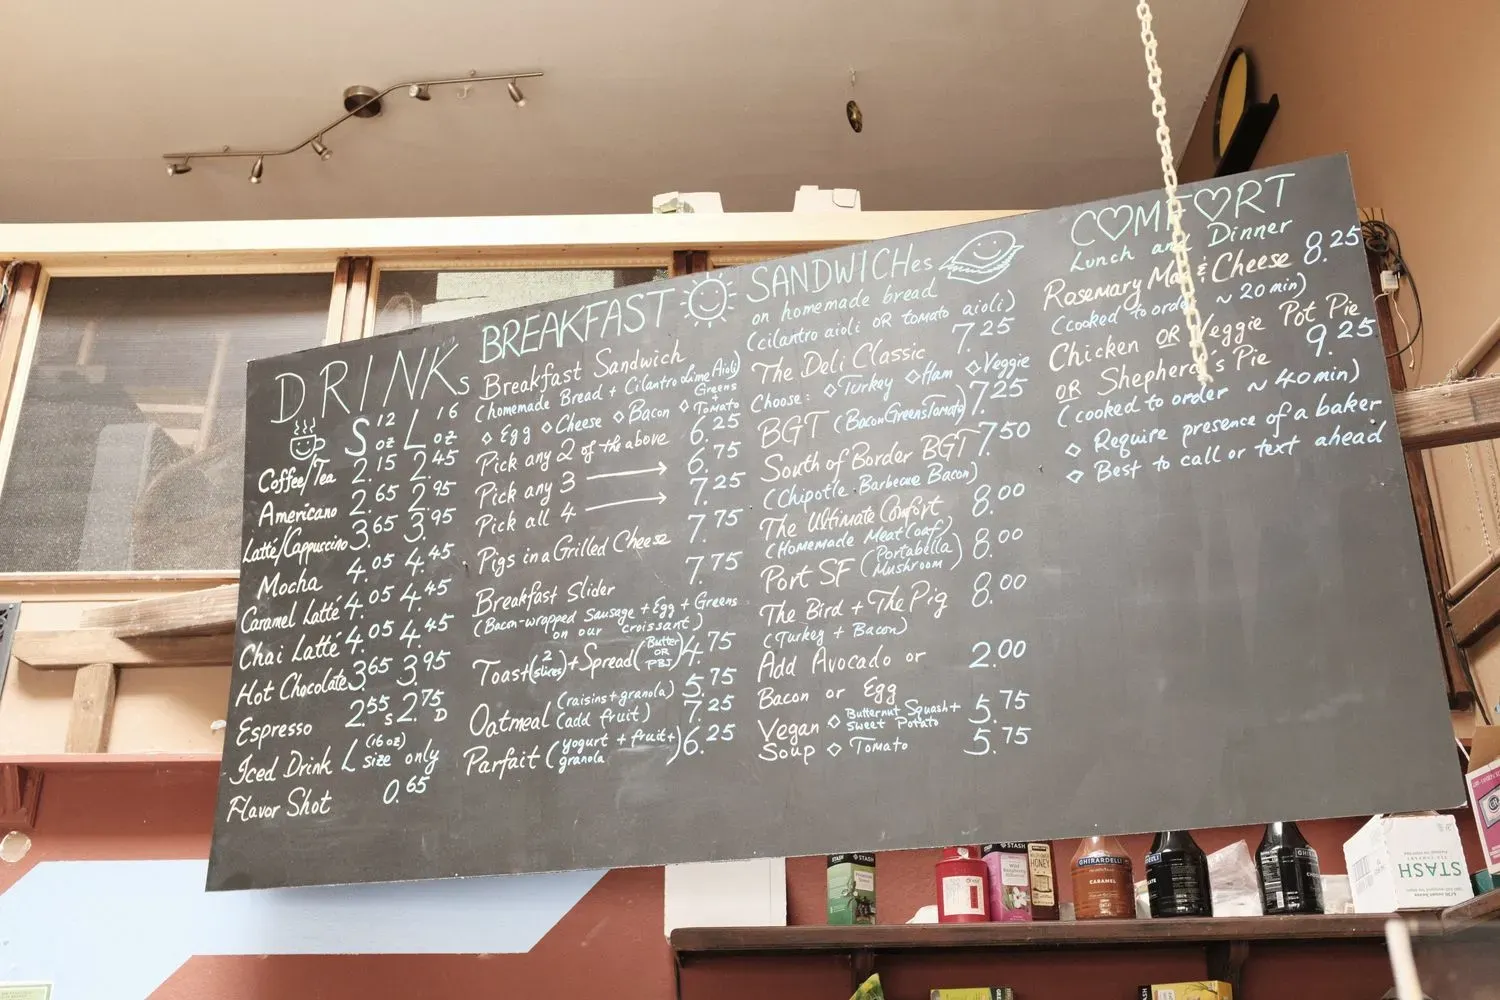 DRINKs
S 12 oz L 16 oz
Coffee/Tea 2.15 2.45
Americano 2.65 2.95
Latté/Cappuccino 3.65 3.95
Mocha 4.05 4.45
Caramel Latté 4.05 4.45
Chai Latté 4.05 4.45
Hot Chocolate 3.65 3.95
Espresso 2.55 S 2.75 D
Iced Drink L (16 oz) size only
Flavor Shot 0.65
BREAKFAST
Breakfast Sandwich
(homemade Bread + Cilantro Lime Aioli)
◇ Egg ◇ Cheese ◇ Bacon ◇ Greens + Tomato
Pick any 2 of the above 6.25
Pick any 3 → 6.75
Pick all 4 → 7.25
Pigs in a Grilled Cheese 7.75
Breakfast Slider 7.75
(Bacon-wrapped Sausage + Egg + Greens
on our croissant)
Toast (2 slices) + Spread (Butter OR PBJ) 4.75
Oatmeal (raisins + granola) 5.75
(add fruit) 7.25
Parfait (yogurt + fruit + granola) 6.25
SANDWICHes
on homemade bread
(cilantro aioli OR tomato aioli)
The Deli Classic 7.25
Choose: ◇ Turkey ◇ Ham ◇ Veggie
BGT (Bacon Greens Tomato) 7.25
South of Border BGT 7.50
(Chipotle Barbecue Bacon)
The Ultimate Comfort 8.00
(Homemade Meat Loaf)
Port SF (Portabella Mushroom) 8.00
The Bird + The Pig 8.00
(Turkey + Bacon)
Add Avocado or 2.00
Bacon or Egg
Vegan ◇ Butternut Squash + Sweet Potato 5.75
Soup ◇ Tomato 5.75
COMFORT
Lunch and Dinner
Rosemary Mac & Cheese 8.25
(cooked to order ~ 20 min)
Chicken OR Veggie Pot Pie
OR Shepherd's Pie 9.25
(cooked to order ~ 40 min)
◇ Require presence of a baker
◇ Best to call or text ahead
STASH
STASH
HONEY
GHIRARDELLI
CARAMEL
STASH